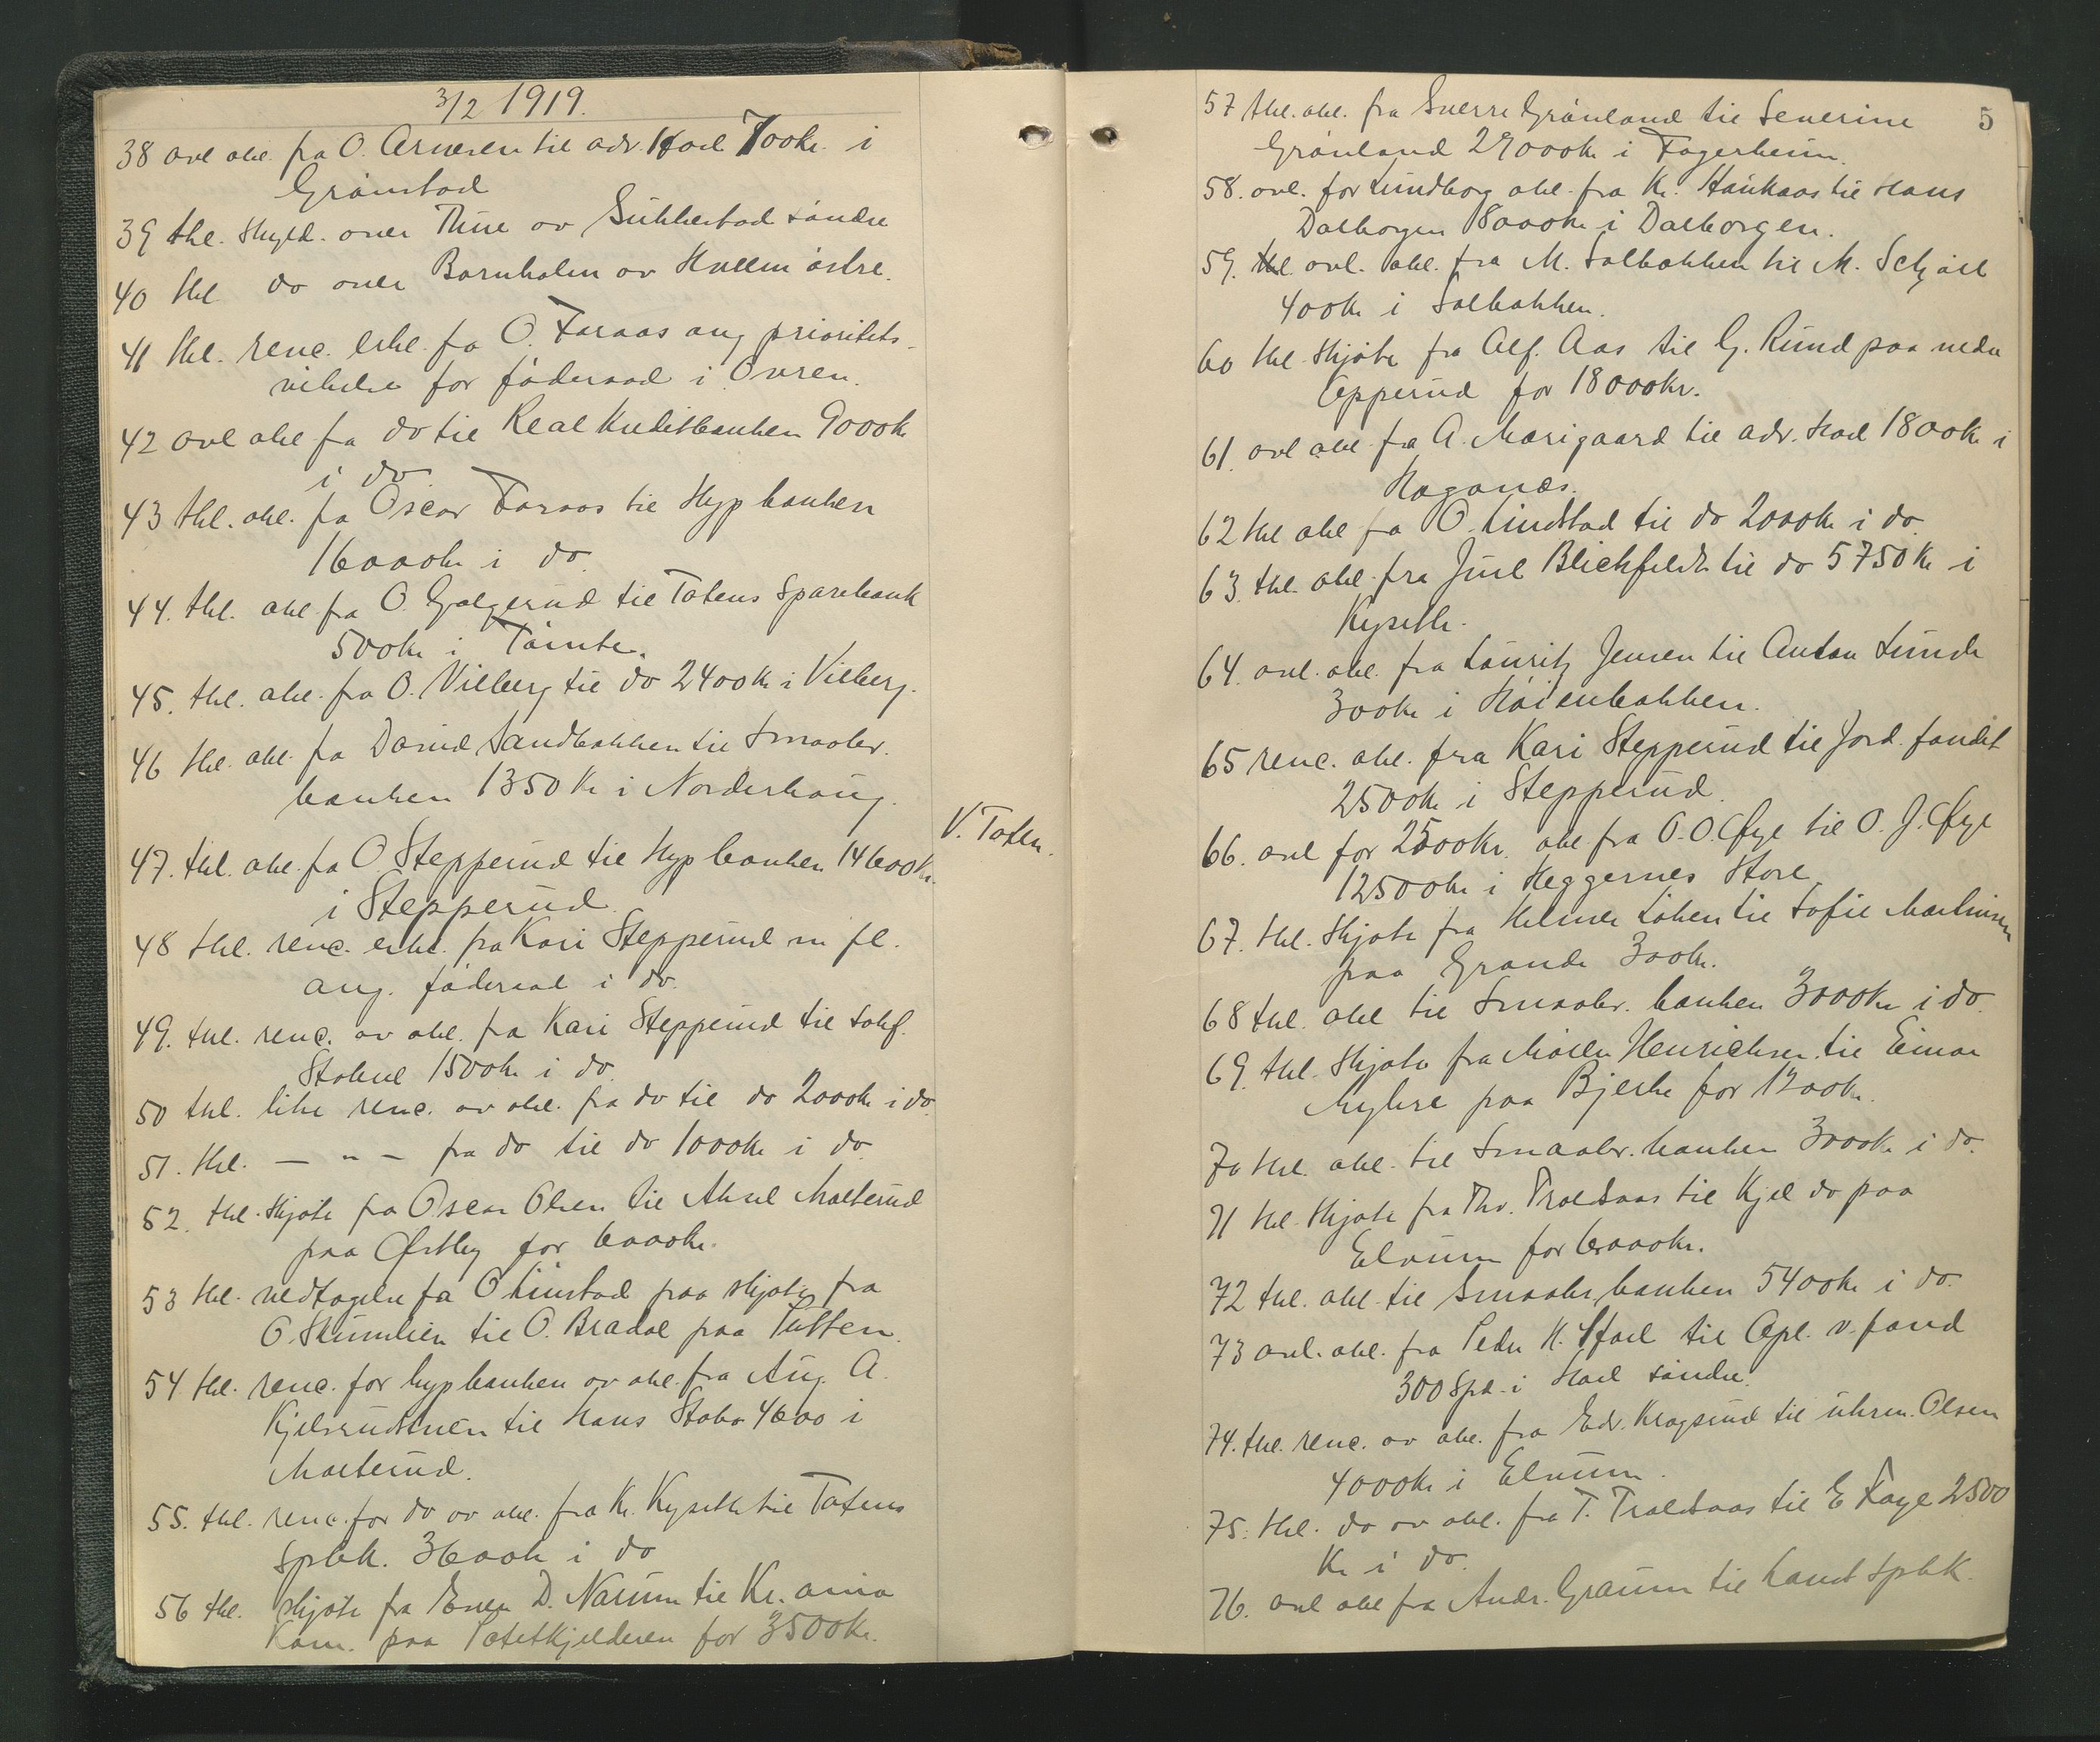 3/2 1919.
38 avl obl. fra O. Arnesen til adv. Hoel 700 kr. i
Grønstad
39 thl. skyld. over Thue av Sukkestad søndre
40 thl do over Bornholm av Hveem østre.
41 thl. renc. erkl. fa O. Faraas ang prioritets-
vikelse for føderaad i Ovren.
42 avl obl fa do til Realkreditbanken 9000 kr
i do
43 thl. obl. fa Oscar Faraas til Hypbanken
16000 kr i do.
44. thl. obl fra O. Galgerud til Totens Sparebank
500 kr i Tømte.
45. thl. obl. fra O. Vilberg til do 2400 kr i Vilberg.
46 thl. obl. fa David Sandbakken til Smaabr.
banken 1350 Kr i Norderhaug.
47. thl. obl. fa O. Stepperud til Hypbanken 14600 kr.
V. Toten.
i Stepperud.
48 thl. renc. erkl. fra Kari Stepperud m fl.
ang. føderaad i do.
49. thl. renc. av obl. fa Kari Stepperud til sakf.
Stabel 1500 kr i do.
50 thl. like renc. av obl. fra do til do 2000 kr i do.
51. thl. — " — fra do til do 1000 kr i do
52. thl. skjøte fra Oscar Olsen til Aksel Malterud
paa Østby for 6000 kr.
53 thl. vedtagelse fa O Linstad paa skjøte fra
O. Skumlien til O. Bradal paa Tutten.
54 thl. renc. for hypbanken av obl. fra Aug. A.
Kjelsrudstuen til Hans Stabo 4600 i
Malterud.
55. thl. renc. for do av obl. fra K. Kyseth til Totens
Spbk. 3600 kr i do
56 thl. skjøte fra Even D. Narum til Kr.ania
Kom. paa Potetkjelderen for 3500 kr.
5
57 thl. obl. fra Sverre Grønland til Severine
Grønland 29000 kr i Fagerheim.
58. avl. for Lundborg obl. fra K. Haukaas til Hans
Dalborgen 8000 kr i Dalborgen.
59. avl. obl. fra M. Solbakken til M. Schjøll
400 kr i Solbakken.
60 thl. skjøte fra Alf. Aas til G. Rund paa nedre
Opperud for 18000 kr.
61. avl obl fra A. Marigaard til adv. Hoel 1800 kr i
Raganes.
62 thl obl fa O. Lindstad til do 2000 kr i do
63. thl. obl. fra Juul Blichfeldt til do 5750 kr i
Kyseth.
64. avl. obl. fra Lauritz Jensen til Anton Lunde
300 kr i Høienbakken.
65 renc. obl. fra Kari Stepperud til Jord. fondet
2500 kr i Stepperud.
66. avl for 2500 kr. obl fra O. O. Øye til O. J. Øye
12500 kr i Heggernes Store
67. thl. skjøte fra Helmer Løken til Sofie Martinsen
paa Grande 300 kr.
68 thl. obl til Smaabr. banken 3000 kr i do.
69. thl. skjøte fra Maren Henriksen til Einar
Myhre paa Bjerke for 1200 kr.
70 thl. obl. til Smaabr. banken 3000 kr i do.
71 thl. skjøte fra Thv. Troldaas til Kjel do paa
Elvum for 6000 kr.
72 thl. obl til Smaabr. banken 5400 kr i do.
73 avl. obl. fra Peder H. Hoel til Opl. v. fond
300 Spd. i Hoel søndre.
74. thl. renc. av obl. fra Edv. Kragsrud til uhrm. Olsen
4000 kr i Elvum.
75. thl. do av obl. fra T. Troldaas til E Hage 2500
Kr i do.
76. avl obl fra Andr. Graum til Land Spbk.